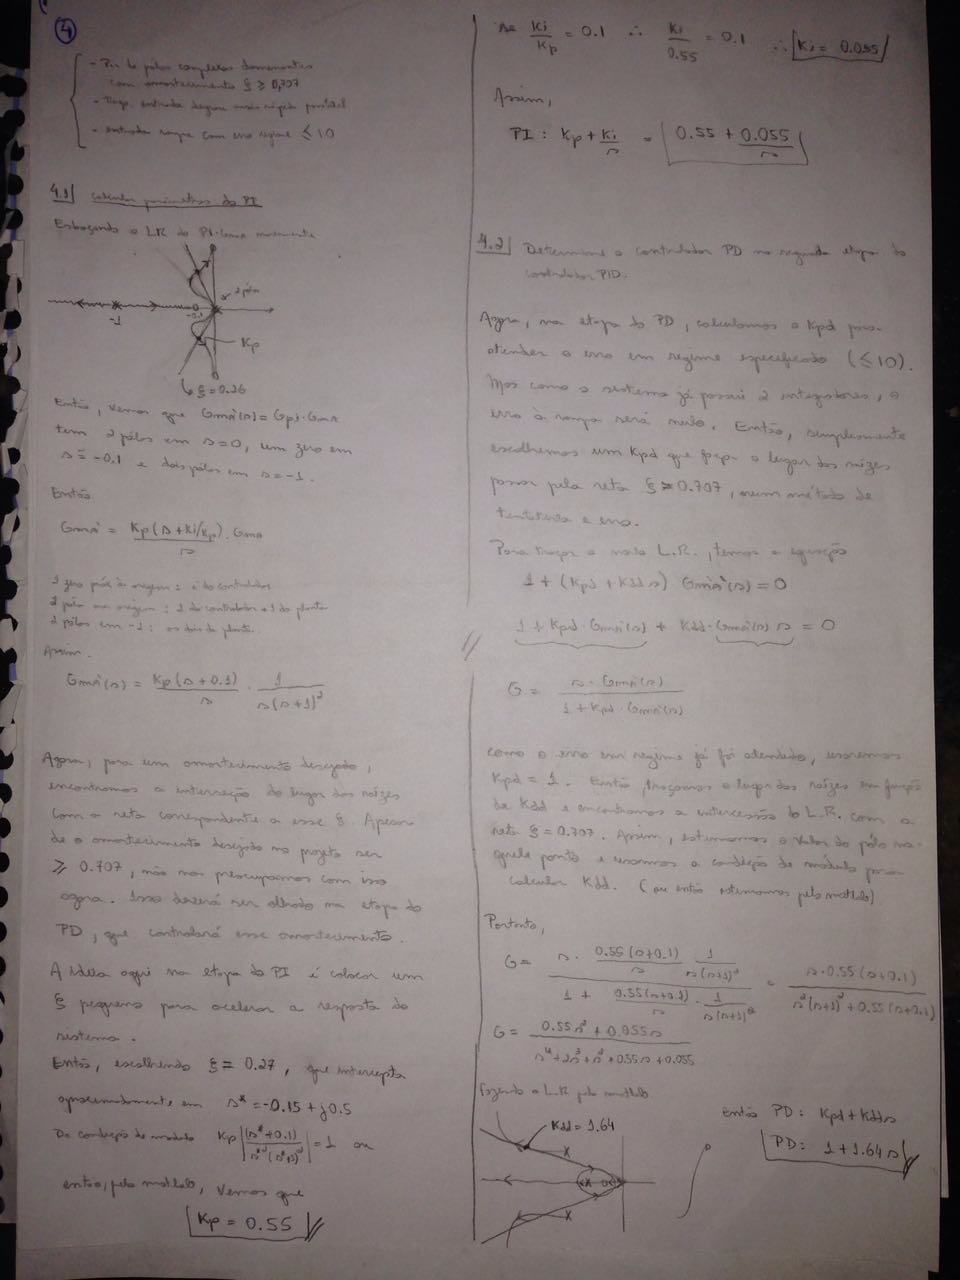 4
- Par de pólos complexos dominantes
com amortecimento ξ ≥ 0,707
- Resp. entrada degrau mais rápida possível
- entrada rampa com erro regime ≤ 10
4.1 Calcular parâmetros do PI
Esboçando o L.R. do PI
2 pólos
-1
-0.1
Kp
ξ = 0.26
Então, vemos que Gma'(s) = Gpi · Gma
tem 2 pólos em s=0, um zero em
s = -0.1 e dois pólos em s = -1.
Então
Gma' = Kp(s + Ki/Kp) . Gma
s
1 zero próx à origem : é do controlador
2 pólos na origem : 1 do controlador + 1 da planta
2 pólos em -1 : os dois da planta.
Assim.
Gma'(s) = Kp(s + 0.1) . 1
s s(s+1)²
Agora, para um amortecimento desejado,
encontramos a interseção do lugar das raízes
com a reta correspondente a esse ξ. Apesar
de o amortecimento desejado no projeto ser
≥ 0.707, não nos preocupamos com isso
agora. Isso deverá ser olhado na etapa do
PD, que controlará esse amortecimento.
A ideia aqui na etapa do PI é colocar um
ξ pequeno para acelerar a resposta do
sistema.
Então, escolhendo ξ = 0.27, que intercepta
aproximadamente em s* = -0.15 + j0.5
Da condição de módulo Kp |(s*+0.1) / s*²(s*+1)²| = 1 ou
então, pelo matlab, vemos que
Kp = 0.55
Se Ki/Kp = 0.1 ∴ Ki/0.55 = 0.1 ∴ Ki = 0.055
Assim,
PI : Kp + Ki/s = 0.55 + 0.055/s
4.2 Determine o controlador PD na segunda etapa do
controlador PID.
Agora, na etapa do PD, calculamos o Kpd para
atender o erro em regime especificado (≤ 10).
Mas como o sistema já possui 2 integradores, o
erro à rampa será nulo. Então, simplesmente
escolhemos um Kpd que faça o lugar das raízes
passar pela reta ξ = 0.707, num método de
tentativa e erro.
Para traçar o novo L.R., temos a equação
1 + (Kpd + Kdd s) Gma'(s) = 0
1 + Kpd · Gma'(s) + Kdd · Gma'(s) s = 0
G = s · Gma'(s)
1 + Kpd · Gma'(s)
como o erro em regime já foi atendido, usaremos
Kpd = 1. Então, traçamos o lugar das raízes em função
de Kdd e encontramos a intercessão do L.R. com a
reta ξ = 0.707. Assim, estimamos o valor do pólo na-
quele ponto e usamos a condição de módulo para
calcular Kdd. (ou então estimamos pelo matlab).
Portanto,
G = s · 0.55(s+0.1)/s · 1/s(s+1)² = s · 0.55(s+0.1)
1 + 0.55(s+0.1)/s · 1/s(s+1)² s²(s+1)² + 0.55(s+0.1)
G = 0.55s² + 0.055s
s⁴ + 2s³ + s² + 0.55s + 0.055
Fazendo o L.R. pelo matlab
Kdd = 1.64
Então PD: Kpd + Kdd s
PD: 1 + 1.64s